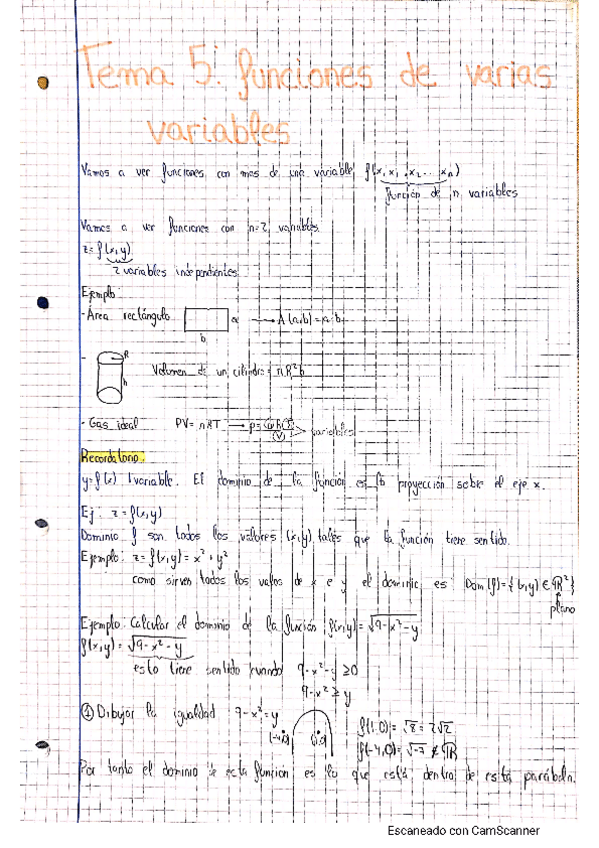 Tema 5: funciones de varias
variables
Vamos a ver funciones con mas de una variable f(x, x₁, x₂... xₙ)
función de n variables
Vamos a ver funciones con n=2 variables.
z=f(x,y)
2 variables independientes
Ejemplo:
-Area rectángulo a → A(a,b)=a·b
b
- R
h
Volumen de un cilindro: πR²h
- Gas ideal PV=nRT → p= (V) variables
Recordatorio:
y=f(x) 1 variable. El dominio de la función es la proyección sobre el eje x.
Ej: z=f(x,y)
Dominio f son todos los valores (x,y) tales que la función tiene sentido.
Ejemplo: z=f(x,y)=x²+y²
como sirven todos los valores de x e y el dominio es: Dom(f)={(x,y)∈ℝ²}
plano
Ejemplo: Calcular el dominio de la función f(x,y)=√9-x²-y
f(x,y)=√9-x²-y
esto tiene sentido cuando 9-x²-y≥0
9-x²≥y
① Dibujar la igualdad 9-x²=y
(-4,0) (1,0)
f(1,0)=√8=2√2
f(-4,0)=√-7 ∉ ℝ
Por tanto el dominio de esta función es lo que está dentro de esta parábola.
Escaneado con CamScanner